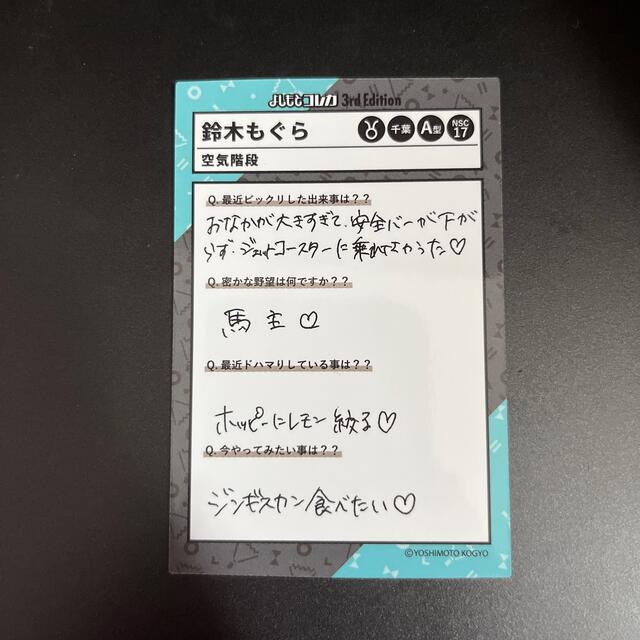 よしもとコレカ 3rd Edition
鈴木もぐら
♉ 千葉 A型 NSC 17
空気階段
Q. 最近ビックリした出来事は？？
おなかが大きすぎて、安全バーが下が
らず、ジェットコースターに乗れなかった♡
Q. 密かな野望は何ですか？？
馬主♡
Q. 最近ドハマりしている事は？？
ホッピーにレモン絞る♡
Q. 今やってみたい事は？？
ジンギスカン食べたい♡
©YOSHIMOTO KOGYO